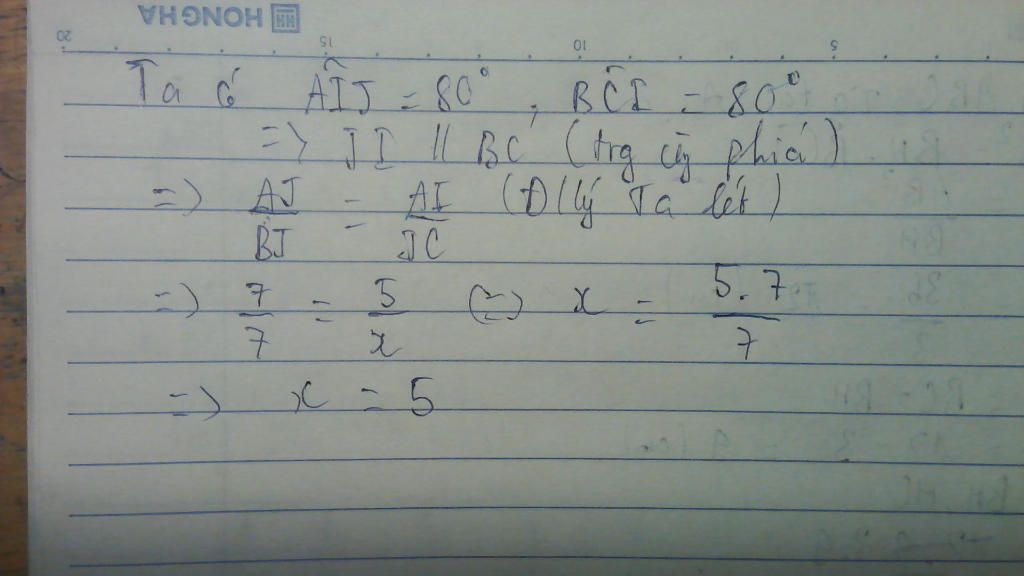 HONG HA
20 15 10 5
Ta có AÎJ = 80°, BĈI = 80°
=> JI // BC (trg cùg phía)
=> AJ/BJ = AI/JC (Đ/lý Ta lét)
=> 7/7 = 5/x (=) x = 5.7/7
=> x = 5